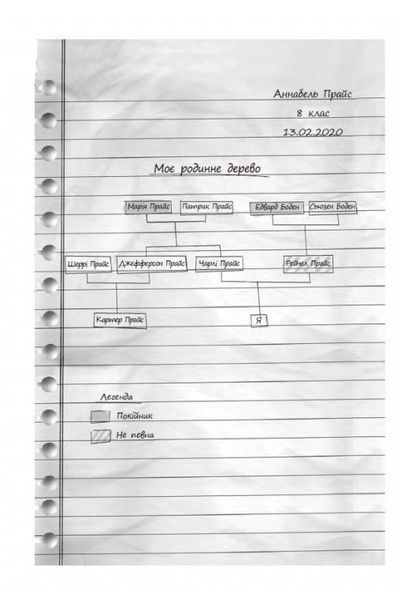 Аннабель Прайс
8 клас
13.02.2020
Моє родинне дерево
Марія Прайс Патрик Прайс Едвард Боден Сьюзен Боден
Шеррі Прайс Джефферсон Прайс Чарлі Прайс Рейчел Прайс
Картер Прайс Я
Легенда
Покійник
Не певна